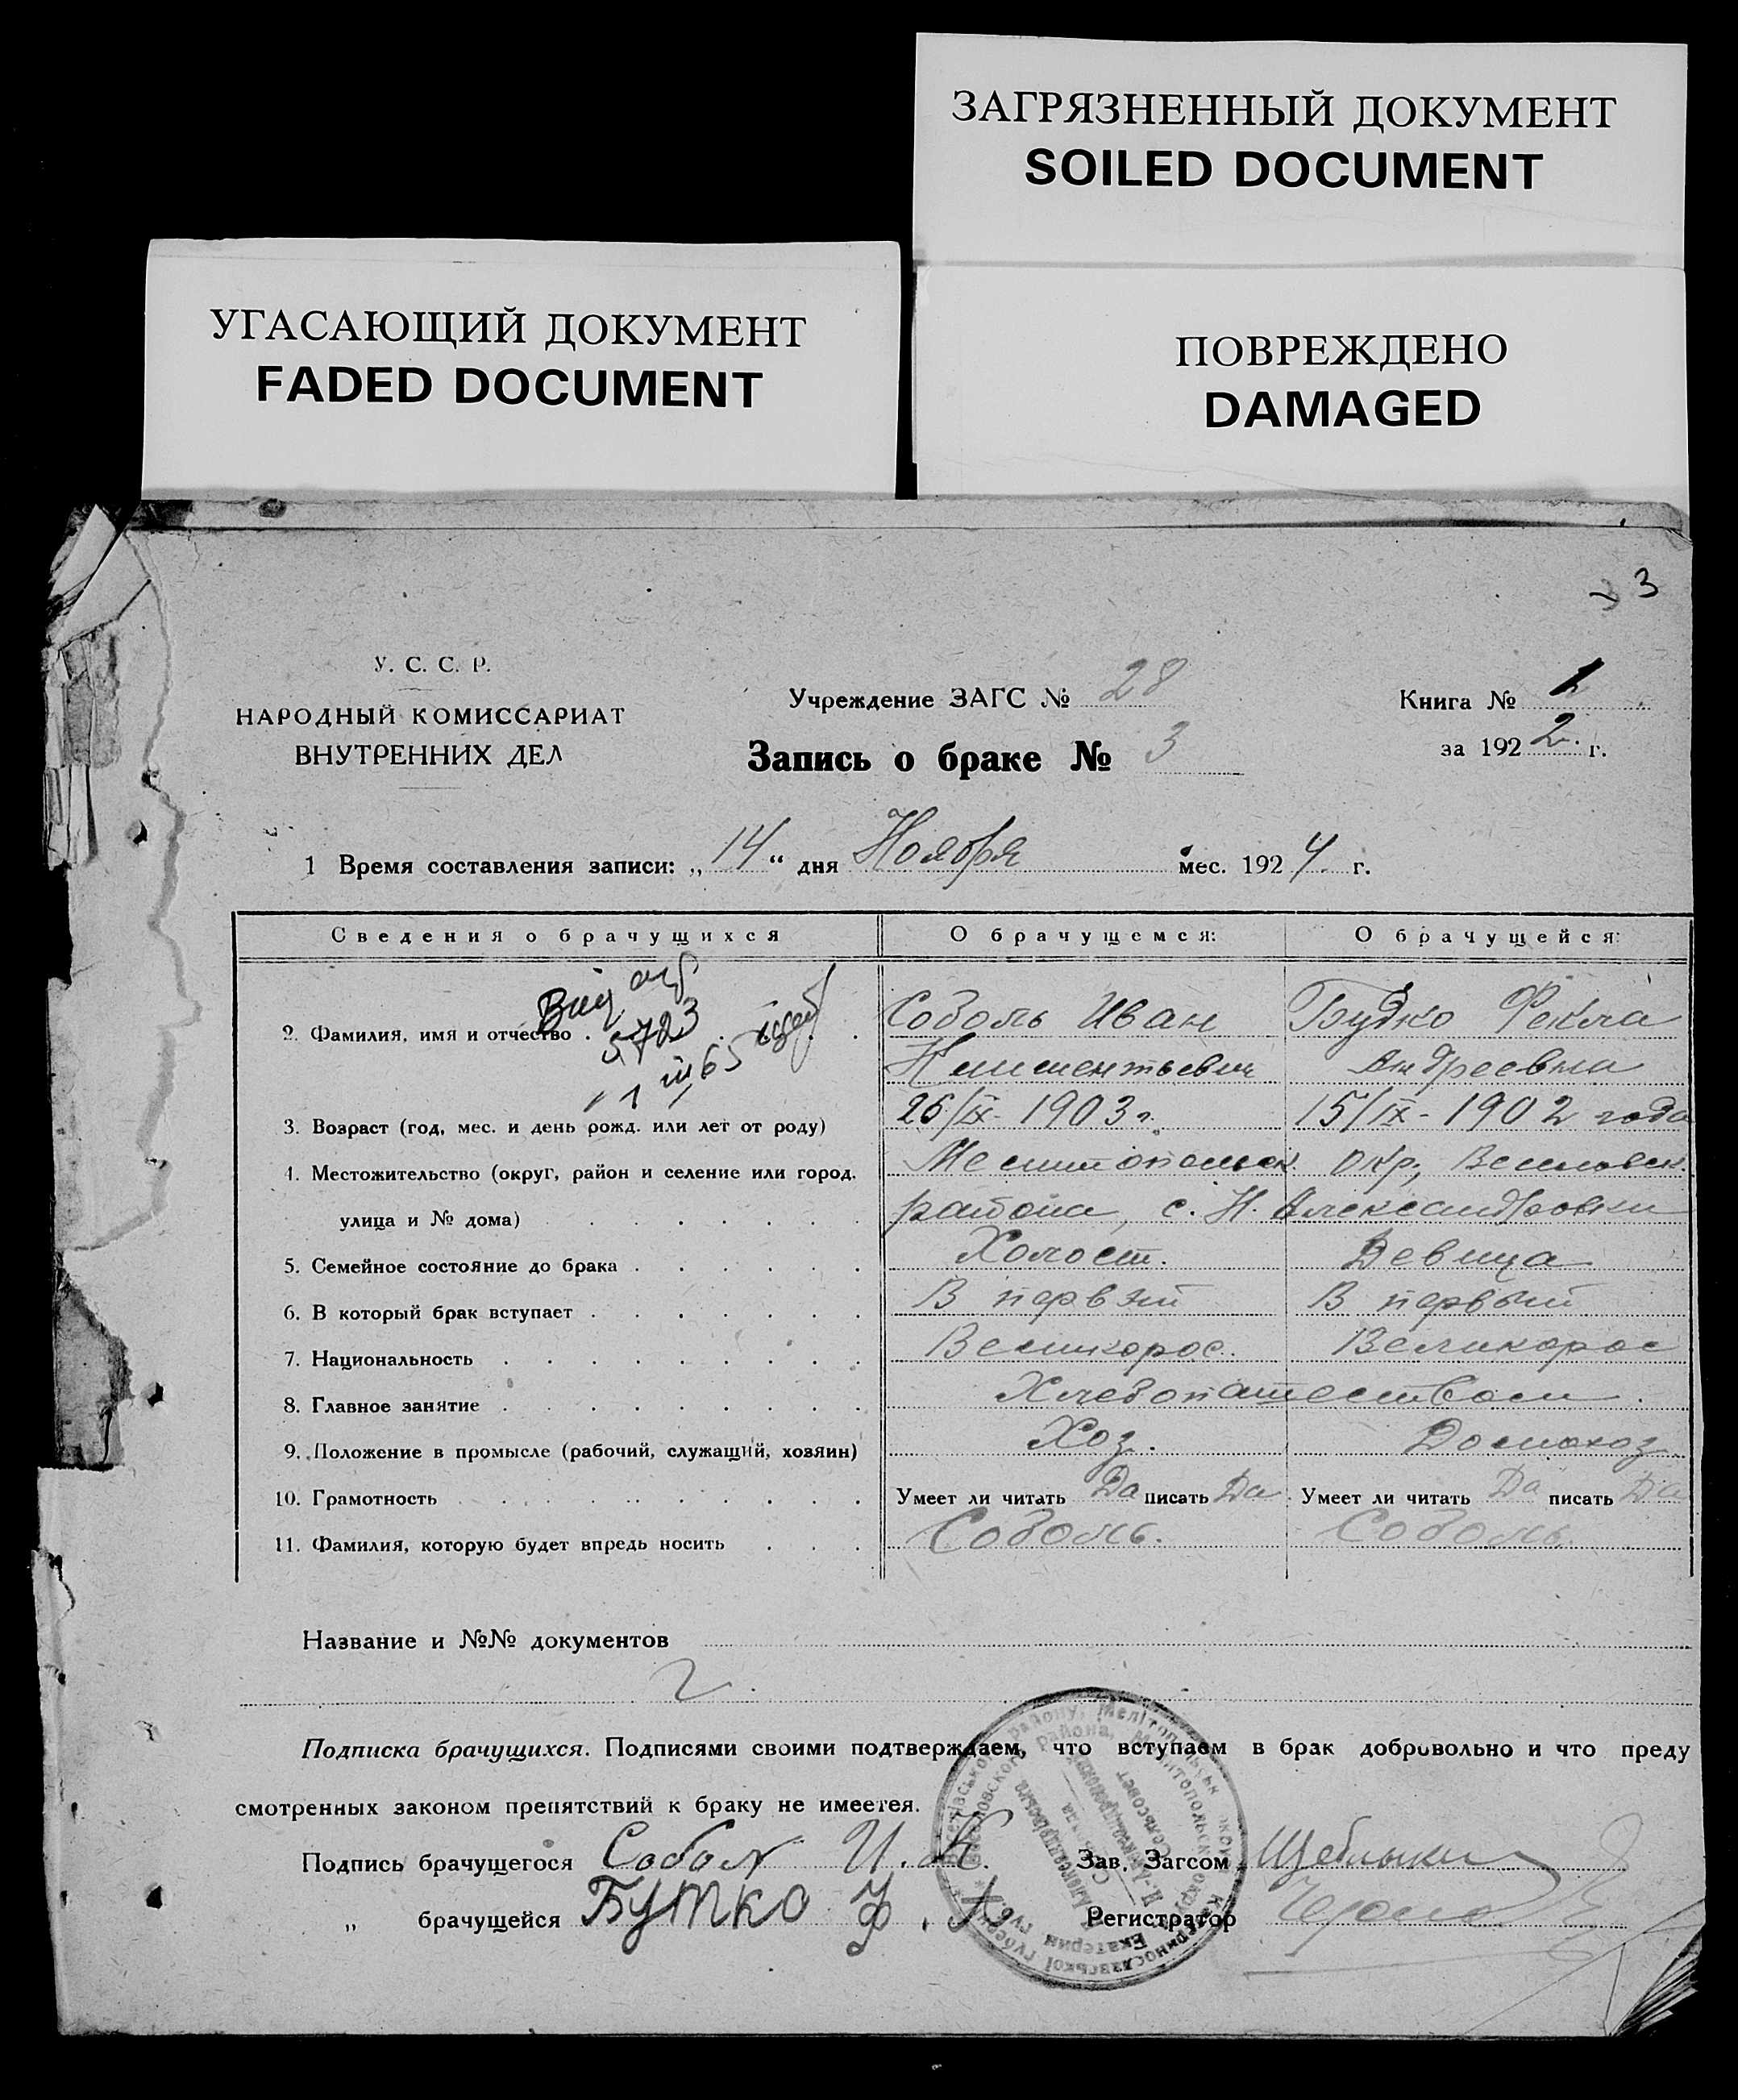 ЗАГРЯЗНЕННЫЙ ДОКУМЕНТ
SOILED DOCUMENT
УГАСАЮЩИЙ ДОКУМЕНТ
FADED DOCUMENT
ПОВРЕЖДЕНО
DAMAGED
3
У. С. С. Р.
НАРОДНЫЙ КОМИССАРИАТ
ВНУТРЕННИХ ДЕЛ
Учреждение ЗАГС № 28
Запись о браке № 3
Книга № 1
за 1922 г.
1 Время составления записи: „14“ дня Ноября мес. 1924 г.
Сведения о брачущихся О брачущемся: О брачущейся:
5723
2. Фамилия, имя и отчество Соболь Иван Будко Фекла
Климентьевич Андреевна
3. Возраст (год, мес. и день рожд. или лет от роду) 26/IX-1903 г. 15/IX-1902 года
4. Местожительство (округ, район и селение или город. Мелитопольск. окр., Веселовск.
улица и № дома) района, с. Н. Александровки
5. Семейное состояние до брака Холост. Девица
6. В который брак вступает В первый В первый
7. Национальность Великорос. Великорос
8. Главное занятие Хлебопашеством.
9. Положение в промысле (рабочий, служащий, хозяин) Хоз. Домохоз
10. Грамотность Умеет ли читать Да писать Да. Умеет ли читать Да писать Да
11. Фамилия, которую будет впредь носить Соболь. Соболь.
Название и №№ документов
Подписка брачущихся. Подписями своими подтверждаем, что вступаем в брак добровольно и что преду
смотренных законом препятствий к браку не имеется.
Подпись брачущегося Собол И. К. Зав. Загсом
„ брачущейся Бутко Ф. А. Регистратор